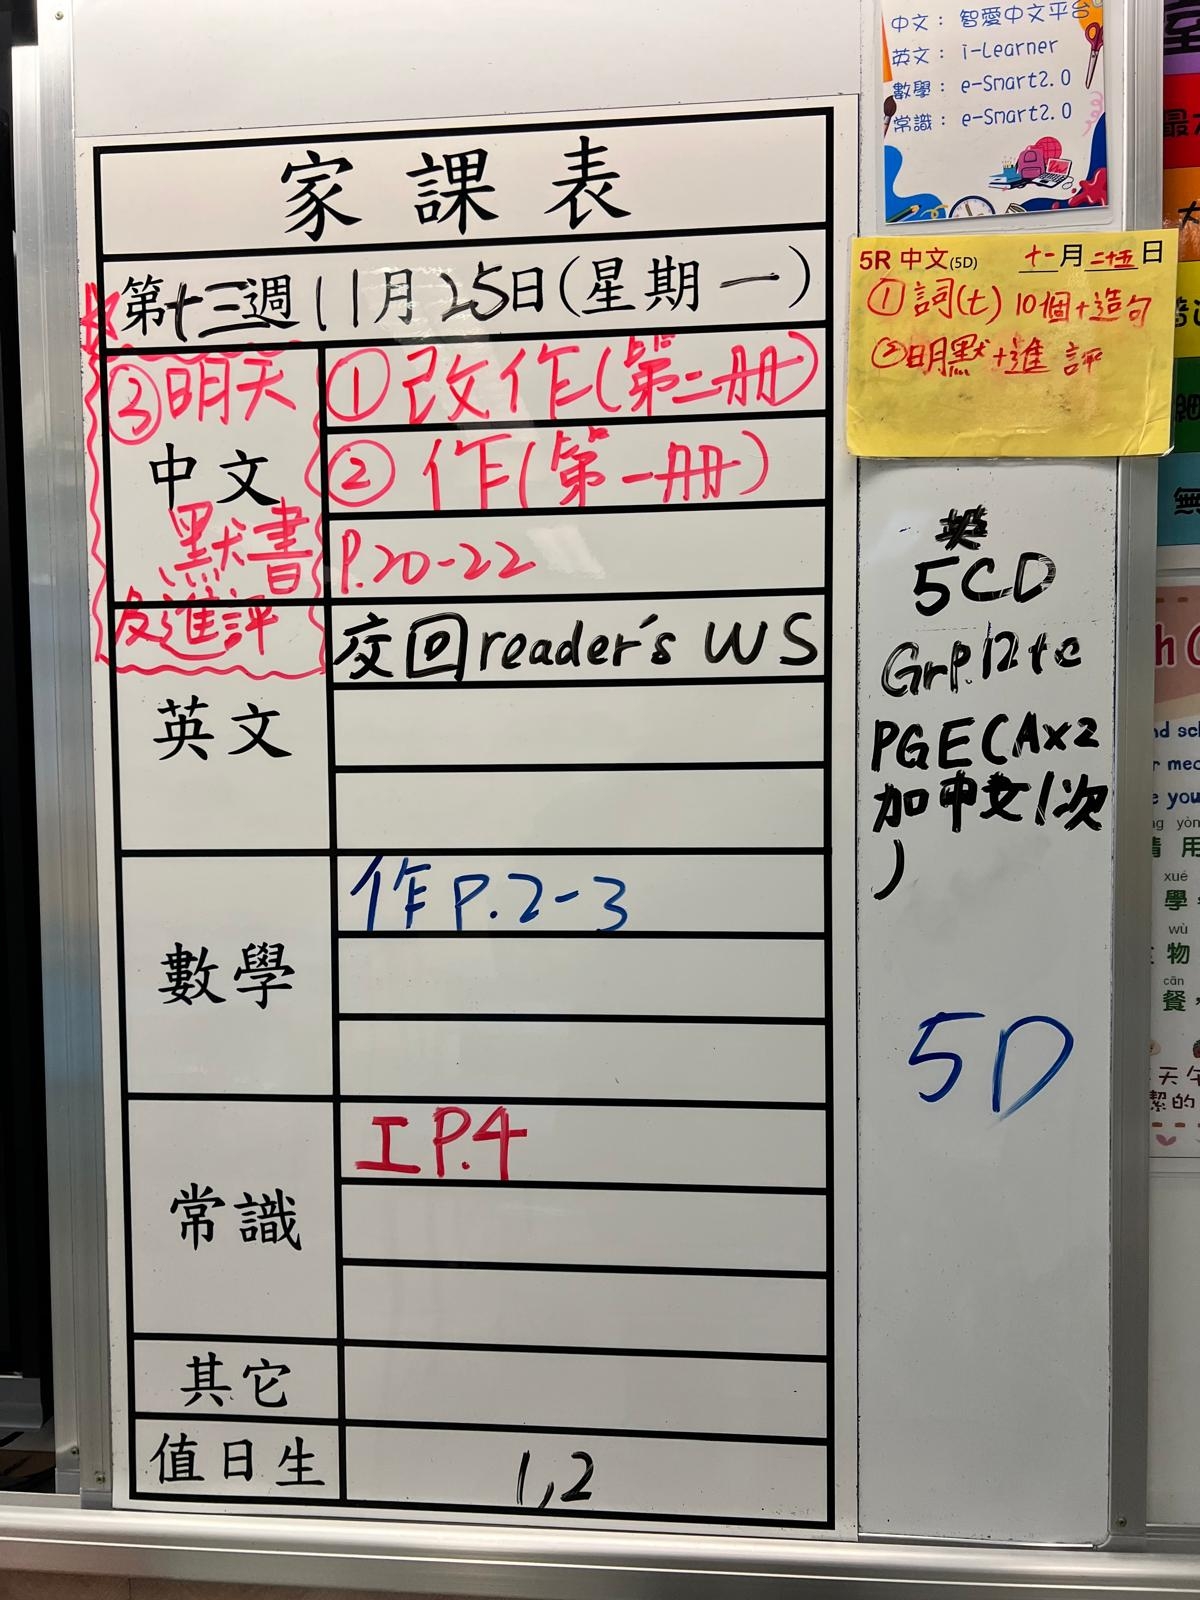 家課表
第十三週 11月25日(星期一)
③明天
中文
默書
及進評
①改作(第二冊)
②作(第一冊)
P.20-22
英文
交回reader's WS
數學
作P.2-3
常識
工P.4
其它
值日生
1,2
中文：智愛中文平台
英文：i-Learner
數學：e-Smart2.0
常識：e-Smart2.0
5R 中文(5D) 十一月二十五日
①詞(七) 10個+造句
②明默+進評
英
5CD
Gr P.12+c
PGE(A×2
加中文1次
)
5D
最
大
無
學
物
餐，
xué
wù
cān
用
yòn
e you
r med
nd sch
天午
潔的